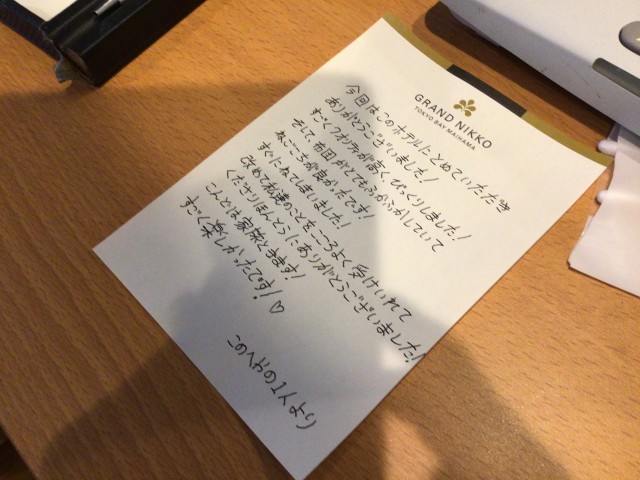 GRAND NIKKO
TOKYO BAY MAIHAMA
今回はこのホテルにとめていただき
ありがとうございました!
すごくクオリティが高く、びっくりしました!
そして、布団がとてもふかふかしていて
ねごこちが良かったです!
すぐにねてしまいました!
改めて私達のことをこころよく受けいれて
くださりほんとうにありがとうございました!
こんどは家族ときます!
すごく楽しかったです!♡